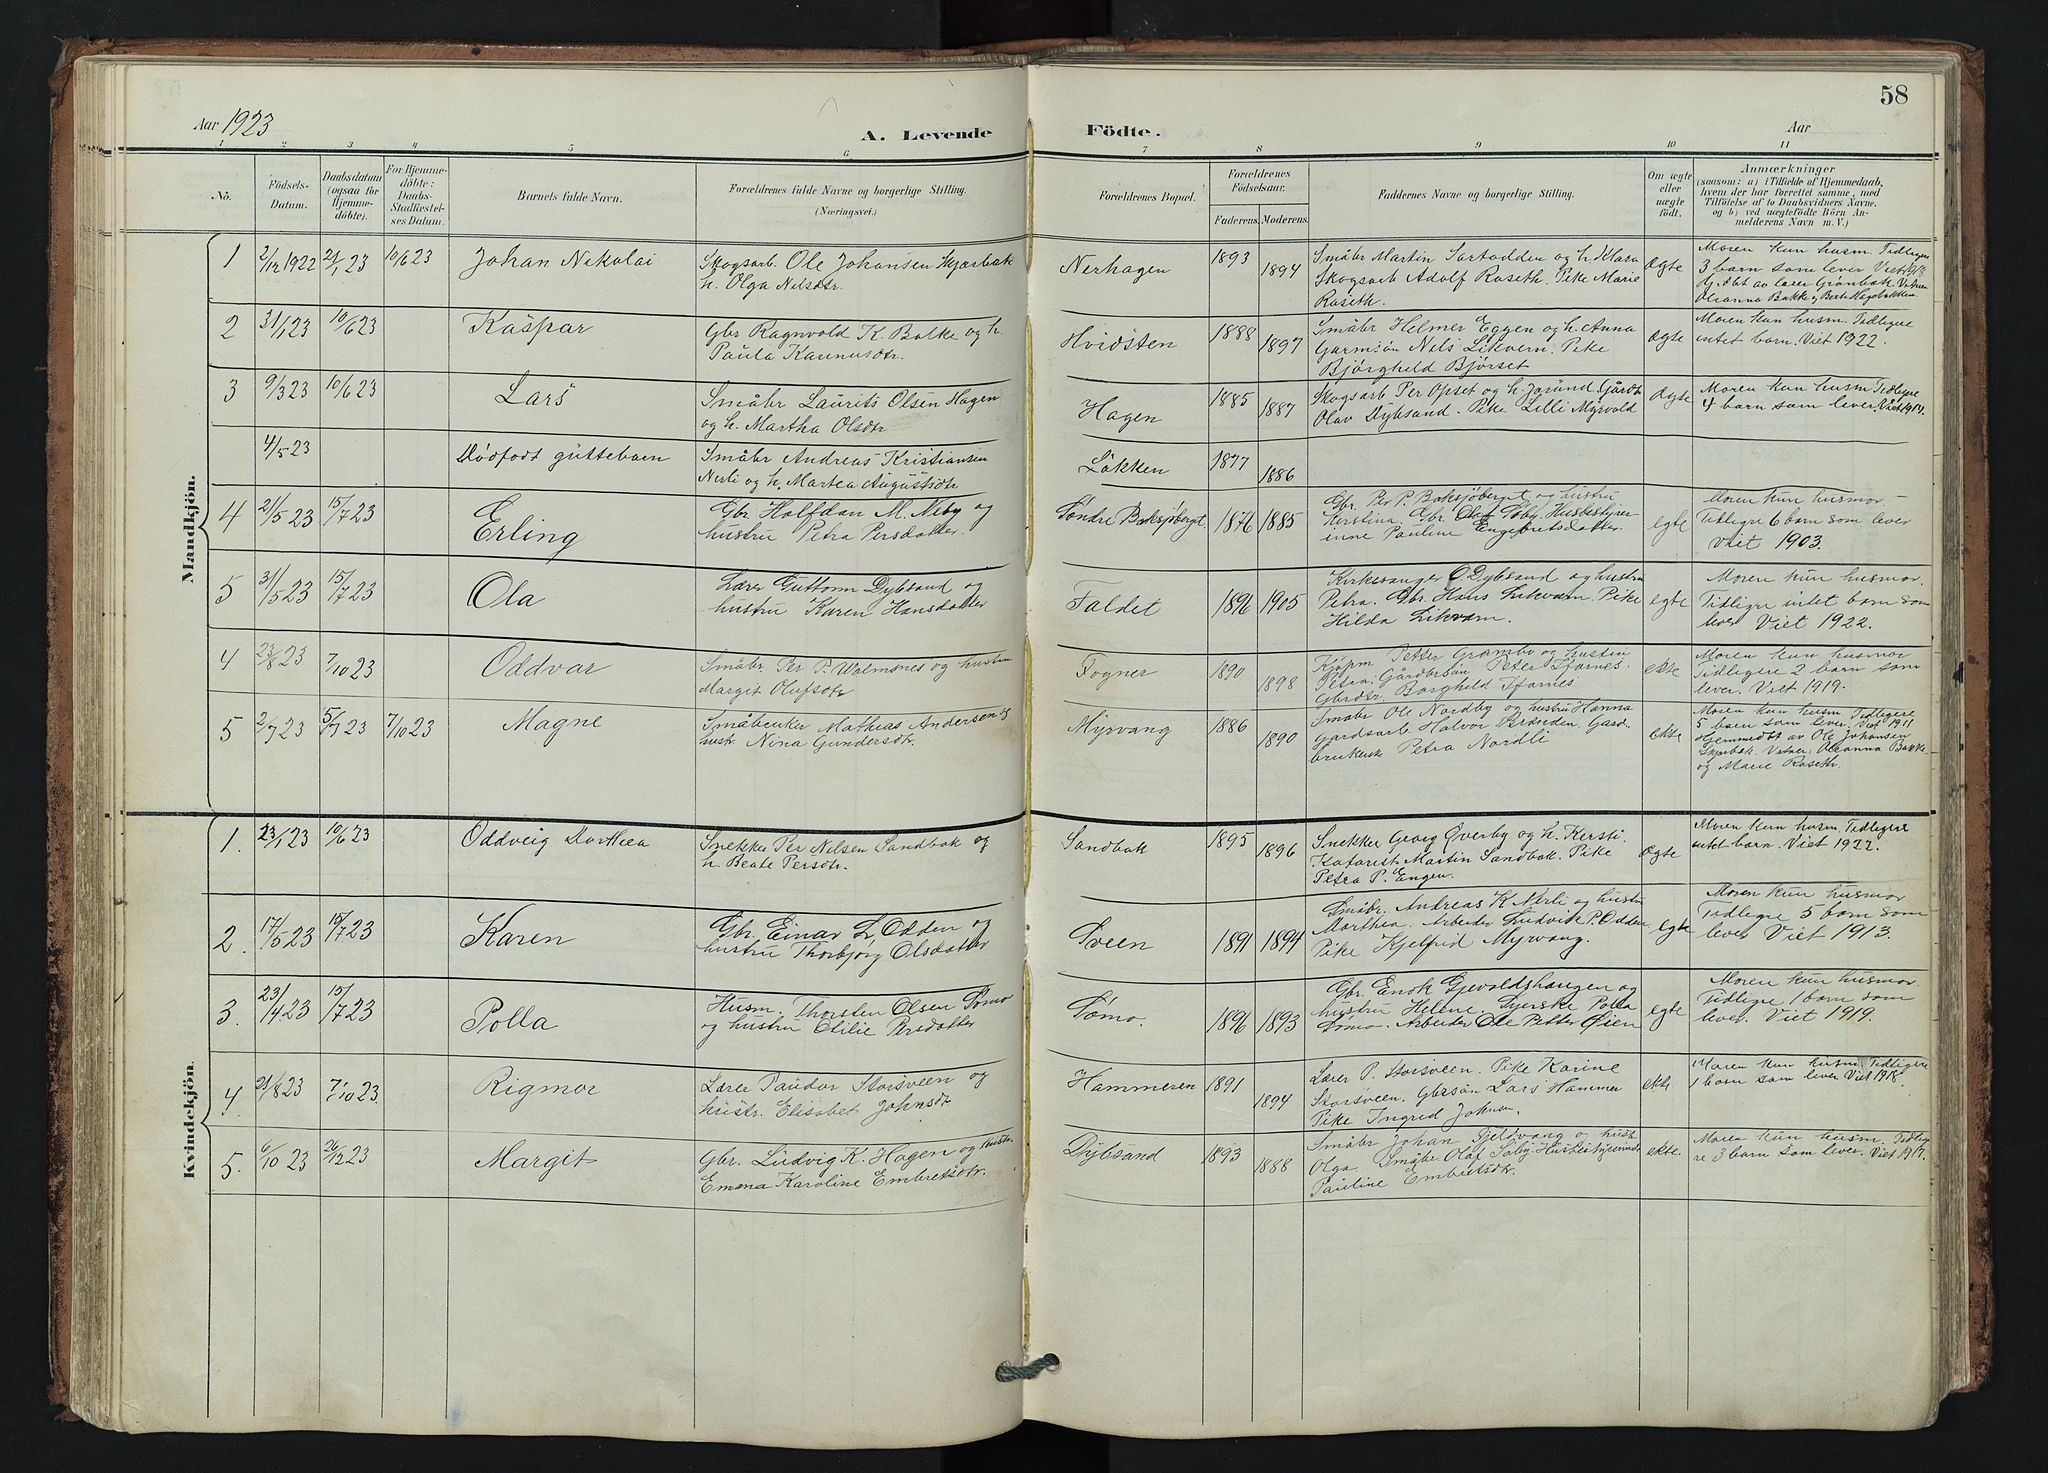 58
Aar 1923
A. Levende Födte.
Aar
1 2 3 4 5 6 7 8 9 10 11
No.
Födsels-
Datum.
Daabsdatum
(ogsaa for
Hjemme-
döbte).
For Hjemme-
döbte:
Daabs-
Stadfæstel-
ses Datum.
Barnets fulde Navn.
Forældrenes fulde Navne og borgerlige Stilling.
(Næringsvei.)
Forældrenes Bopæl.
Forældrenes
Födselsaar.
Faderens. Moderens.
Faddernes Navne og borgerlige Stilling.
Om ægte
eller
uægte
födt.
Anmærkninger
(saasom: a) i Tilfælde af Hjemmedaab,
hvem der har forrettet samme, med
Tilföielse af to Daabsvidners Navne,
og b) ved uægtefödte Börn An-
melderens Navn m. V.)
Mandkjön.
1 2/12 1922 21/1 23 10/6 23 Johan Nikolai
Skogsarb. Ole Johansen Skjærbak
h. Olga Nilsdtr.
Nerhagen 1893 1894
Småbr Martin Sartodden og h. Klara
Skogsarb Adolf Raseth. Pike Marie
Raseth.
Ægte
Moren kun husm. Tidligere
3 barn som lever Viet
Hj.døbt av lærer Grønbak Vitner
Oleanna Bakke og Berte Hagebakken
2 31/1 23 10/6 23 Kaspar
Gbr Ragnvold K. Bakke og h.
Paula Karinusdtr.
Hvidsten 1888 1897
Småbr Helmer Eggen og h. Anna
Garmsön Nils Likvern. Pike
Björghild Björset
Ægte
Moren kun husm. Tidligere
intet barn. Viet 1922.
3 9/3 23 10/6 23 Lars
Småbr Laurits Olsen Hagen
og h. Martha Olsdtr
Hagen 1885 1887
Skogsarb Per Opset og h. Jørund. Gårdbr
Olav Dybsand. Pike Lilli Myrvold
Ægte
Moren kun husm. Tidligere
4 barn som lever. Viet 1914.
4/5 23 Dödfödt guttebarn
Småbr Andreas Kristiansen
Nerli og h. Martea Augustsdtr
Løkken 1877 1886
4 21/5 23 15/7 23 Erling
Gbr Halfdan M. Neby og
hustru Petra Persdatter.
Søndre Baksjøberget 1876 1885
Gbr. Per P. Baksjøberget og hustru
Kerstina. Gbr. Olaf Søby. Husbestyrer
inne Pauline Engebretsdatter.
egte
Moren kun husmor -
Tidligre 6 barn som lever
Viet 1903.
5 31/5 23 15/7 23 Ola
Lærer Guttorm Dybsand og
hustru Karen Hansdatter
Faldet 1896 1905
Kirkesanger O. Dybsand og hustru
Petra. Gbr. Hans Likvern. Pike
Hilda Likvern.
egte
Moren kun husmor.
Tidligre intet barn som
lever Viet 1922.
4 23/8 23 7/10 23 Oddvar
Småbr Per P. Walmsnes og hustru
Margit Olufsdtr
Fogner 1890 1898
Kjøpm Petter Grambo og hustru
Petra. Gårdbrsön Peter Tjærnes.
Gbrdtr. Borghild Tjærnes
ekte
Moren kun husmor
Tidligere 2 barn som
lever. Viet 1919.
5 2/7 23 5/7 23 7/10 23 Magne
Småbruker Mathias Andersen og
hust. Nina Gundersdtr.
Myrvang 1886 1890
Småbr Ole Nordby og hustru Hanna
Gardsarb. Halvor Brænden. Gard-
brukerske Petra Nordli
ekte
Moren kun husm. Tidligere
5 barn som lever. Viet 1911
Hjemmedöbt av Ole Johansen
Skjærbak. Vitner: Oleanna Bakke
og Marie Raseth.
Kvindekjön.
1. 23/1 23 10/6 23 Oddveig Dorthea
Snekker Per Nilsen Sandbak og
h. Beate Persdtr.
Sandbak 1895 1896
Snekker Georg Øverby og h. Kersti.
Kafärist Martin Sandbak. Pike
Petra P. Engen.
Ægte
Moren kun husm. Tidligere
intet barn. Viet 1922.
2. 17/5 23 15/7 23 Karen
Gbr. Einar L. Odden og
hustru Thorbjørg Olsdatter
Sveen 1891 1894
Småbr. Andreas K. Nerli og hustru
Marthea. Arbeider Ludvik P. Odden
Pike Kjelfrid Myrvang.
egte
Moren kun husmor
Tidligre 5 barn som
lever Viet 1913.
3. 23/4 23 15/7 23 Polla
Husm. Thorsten Olsen Sømo
og hustru Otilie Persdatter
Sømo. 1896 1893
Gbr. Enok Gjevoldshaugen og
hustru Helene. Syerske Polla
Sømo. Arbeider Ole Petter Øien
egte
Moren kun husmor.
Tidligre 1 barn som
lever. Viet 1919.
4. 21/8 23 7/10 23 Rigmor
Lærer Paudor Storsveen og
hustr. Elisabet Johnsdtr
Hammeren 1891 1894
Lærer P. Storsveen. Pike Karine
Storsveen. Gbrsön Lars Hammer
Pike Ingrid Johnsen.
ekte
Moren kun husm. Tidligere
1 barn som lever Viet 1918
5. 6/10 23 26/12 23 Margit
Gbr. Ludvig K. Hagen og hustr.
Emma Karoline Embretsdtr.
Dybsand 1893 1888
Småbr Johan Gjeldvang og hust
Olga. Småbr. Olaf Søby. Husbestyrerinde
Pauline Embretsdtr.
ekte.
Moren kun husm. Tidlige
re 3 barn som lever. Viet 1917.